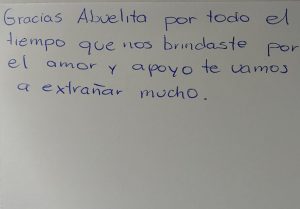 Gracias Abuelita por todo el
tiempo que nos brindaste por
el amor y apoyo te vamos
a extrañar mucho.